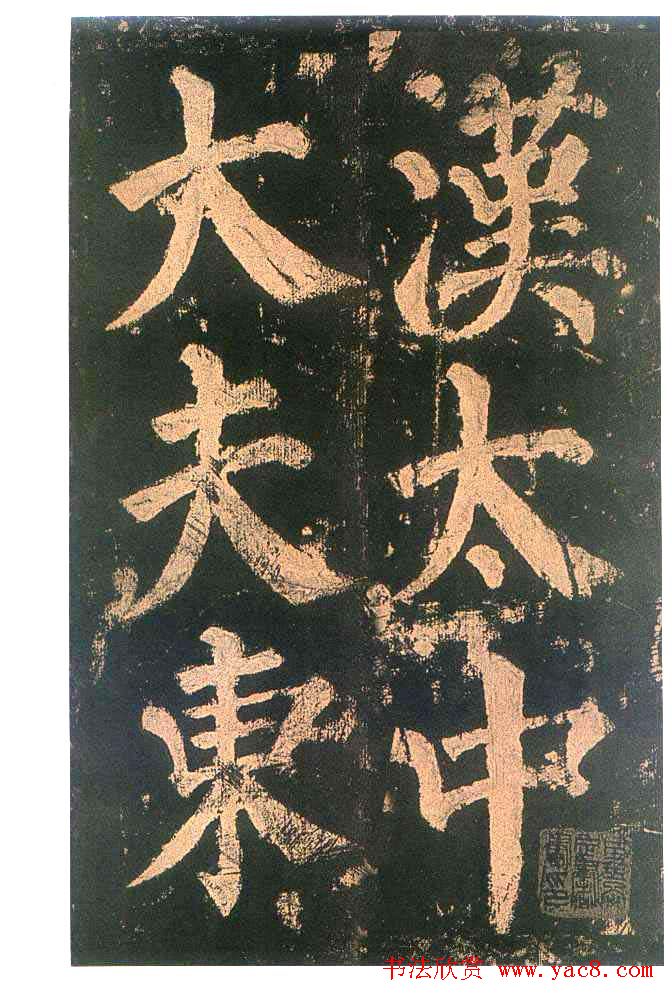 漢太中
大夫東
书法欣赏 www.yac8.com